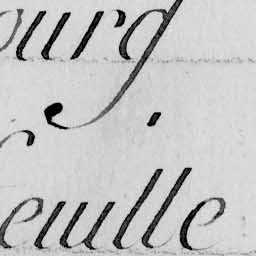 ourg.
euille